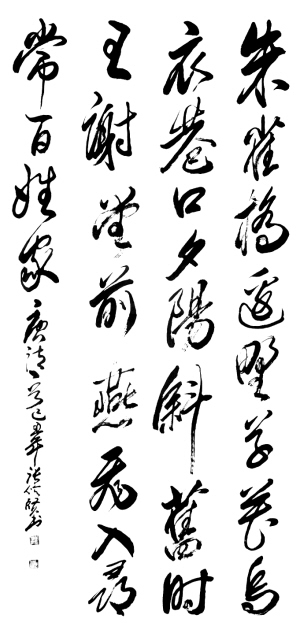 朱雀橋邊野草花烏
衣巷口夕陽斜舊時
王謝堂前燕飛入尋
常百姓家 唐诗一首